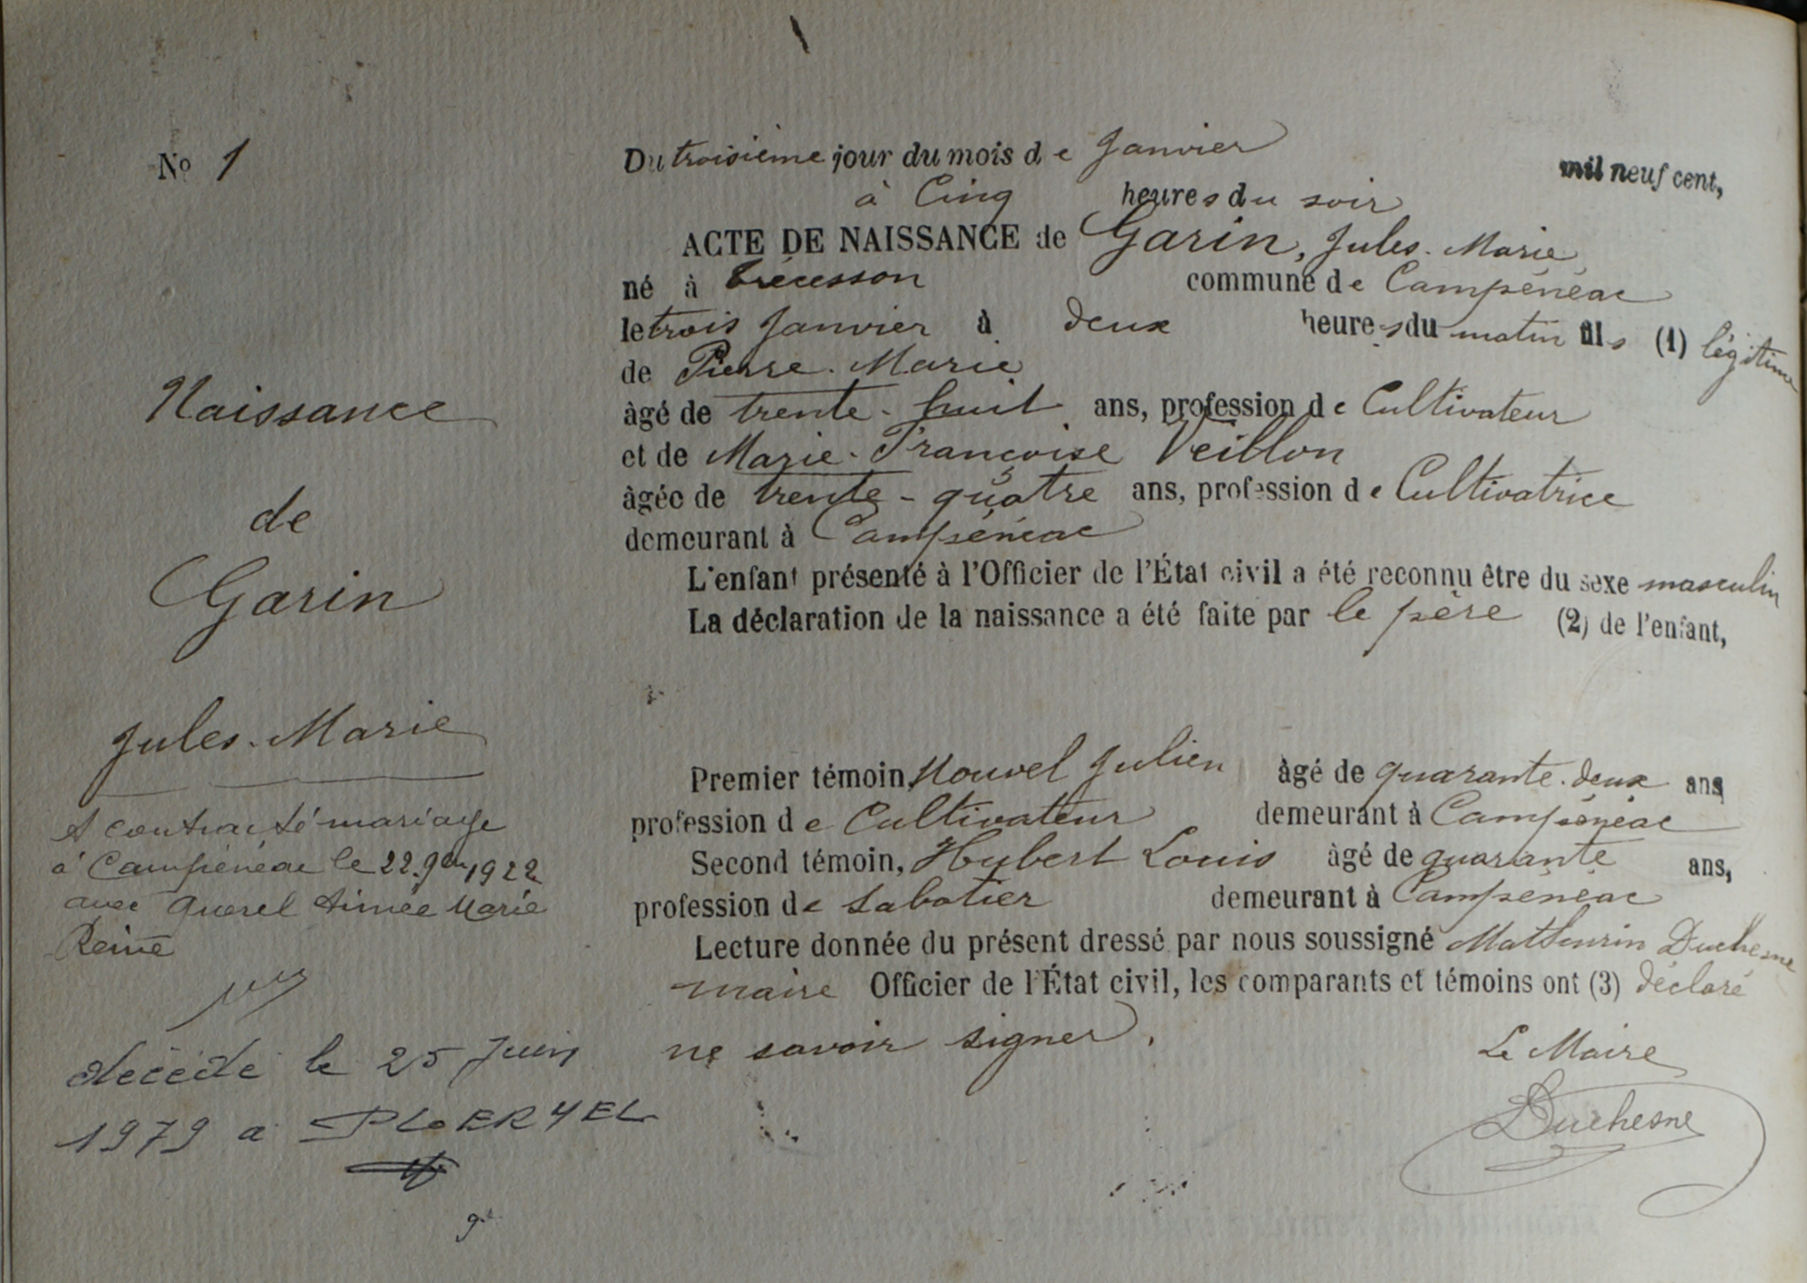 Nº 1
Naissance
de
Garin
Jules-Marie
A contracté mariage
à Campénéac le 22 9bre 1922
avec Quérel Aimée Marie
Reine
décédé le 25 Juin
1979 à PLOERMEL
Du troisième jour du mois de Janvier mil neuf cent,
à Cinq heures du soir
ACTE DE NAISSANCE de Garin, Jules-Marie
né à Trécesson commune de Campénéac
le trois Janvier à deux heures du matin fils (1) légitime
de Pierre-Marie
âgé de trente-huit ans, profession de Cultivateur
et de Marie-Françoise Veillon
âgée de trente-quatre ans, profession de Cultivatrice
demeurant à Campénéac
L'enfant présenté à l'Officier de l'État civil a été reconnu être du sexe masculin
La déclaration de la naissance a été faite par le père (2) de l'enfant,
Premier témoin, Nouvel Julien âgé de quarante-deux ans
profession de Cultivateur demeurant à Campénéac
Second témoin, Hubert Louis âgé de quarante ans,
profession de Sabotier demeurant à Campénéac
Lecture donnée du présent dressé par nous soussigné Mathurin Duchesne
maire Officier de l'État civil, les comparants et témoins ont (3) déclaré
ne savoir signer.
Le Maire
Duchesne